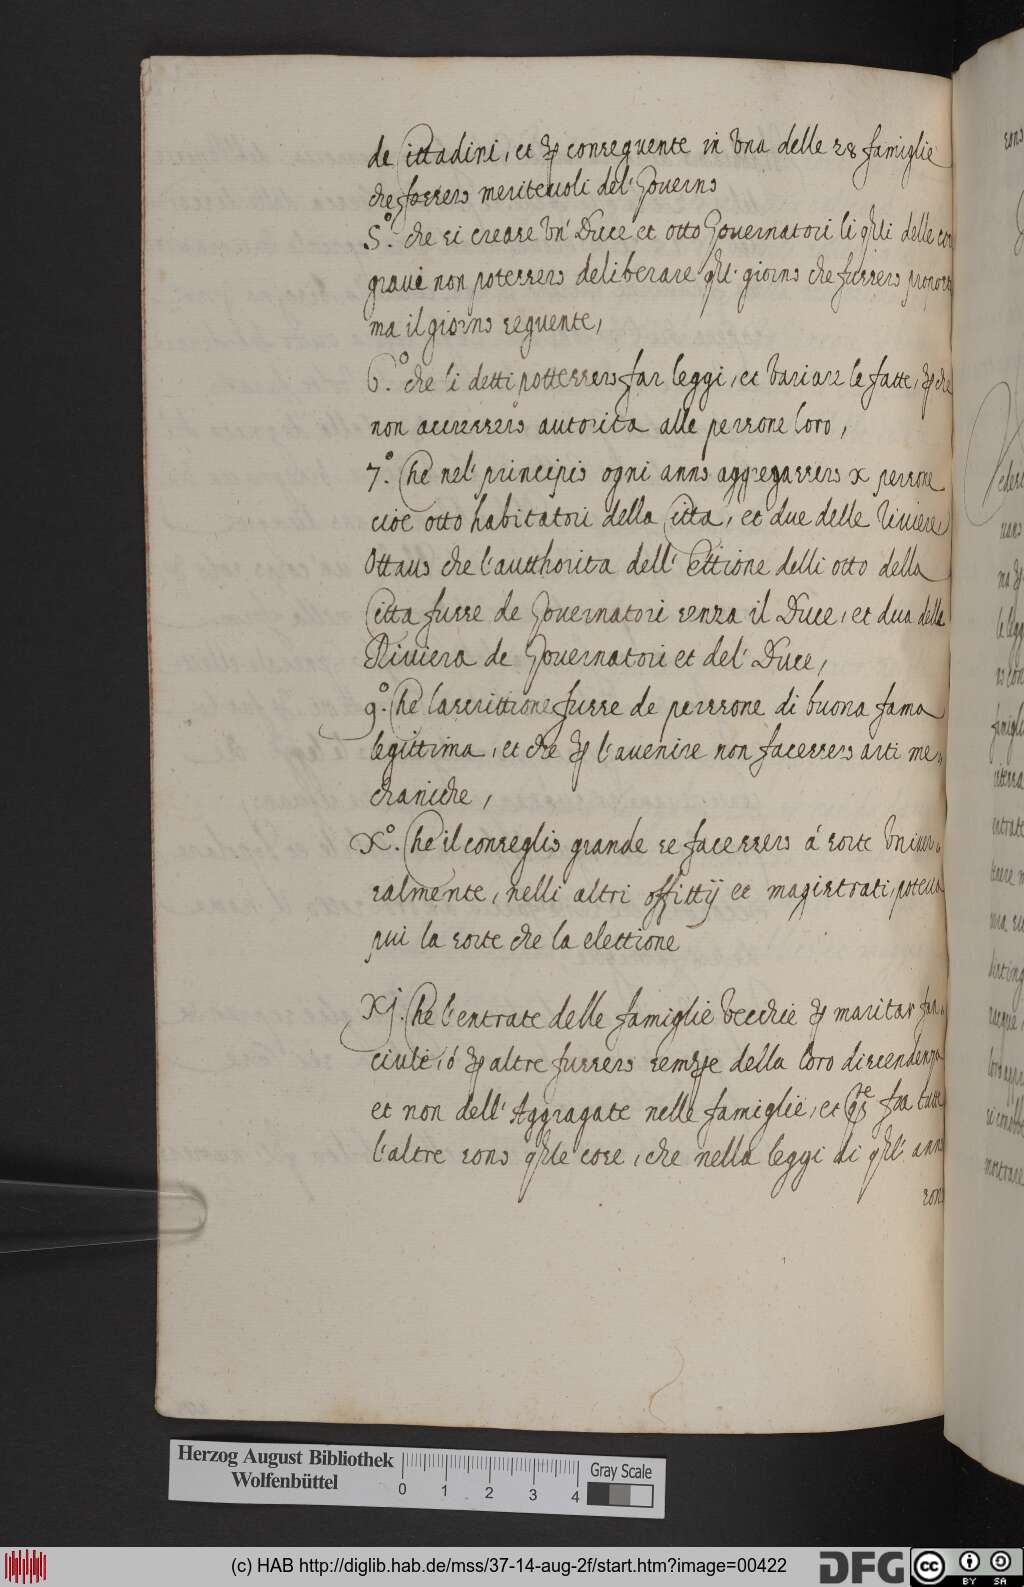 de Cittadini, et ꝑ conseguente in una delle 28 famiglie
che fossero meriteuoli del' Gouerno
5.º che si creare un' Duce et otto Gouernatori li qli delle cose
graui non potessero deliberare ql' giorno che fussero proposte
ma il giorno seguente,
6.º che li detti pottessero far leggi, et variare le fatte, ꝑ che
non accressero autorità alle persone loro,
7.º Che nel' principio ogni anno aggregassero x persone
cioè otto habitatori della Citta, et due delle Riuiere,
Ottauo che l'autthorita dell' Ettione delli otto della
Citta fusse de Gouernatori senza il Duce, et dua della
Riuiera de Gouernatori et del' Duce,
9.º Che l'ascrittione fusse de perssone di buona fama
legittima, et che ꝑ l'auenire non facessero arti me,,
chaniche,
Xº. Che il conseglio grande se facessero á sorte Uniuer,,
salmente, nelli altri offittij et magistrati, poteua
piu la sorte che la elettione
Xj. Che l'entrate delle famiglie Vecchie ꝑ maritar fan,,
ciule, ó ꝑ altre fussero sempe della loro discendenza
et non dell' Aggragate nelle famiglie, et fra tutte
l'altre sono qle cose, che nella leggi di ql' anno
sono
Herzog August Bibliothek
Wolfenbüttel
0 1 2 3 4
Gray Scale
(c) HAB http://diglib.hab.de/mss/37-14-aug-2f/start.htm?image=00422
DFG
cc BY SA